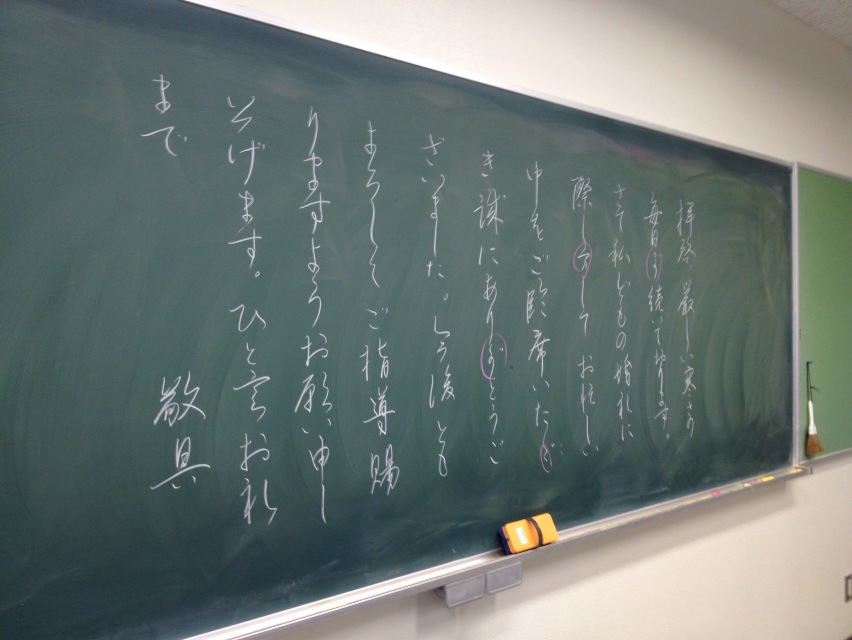 拝啓 厳しい寒さの
毎日が続いております。
さて私どもの婚礼に
際しまして お忙しい
中をご臨席いただ
き誠にありがとうご
ざいました。今後とも
よろしくご指導賜
りますようお願い申し
上げます。ひと言お礼
まで 敬具